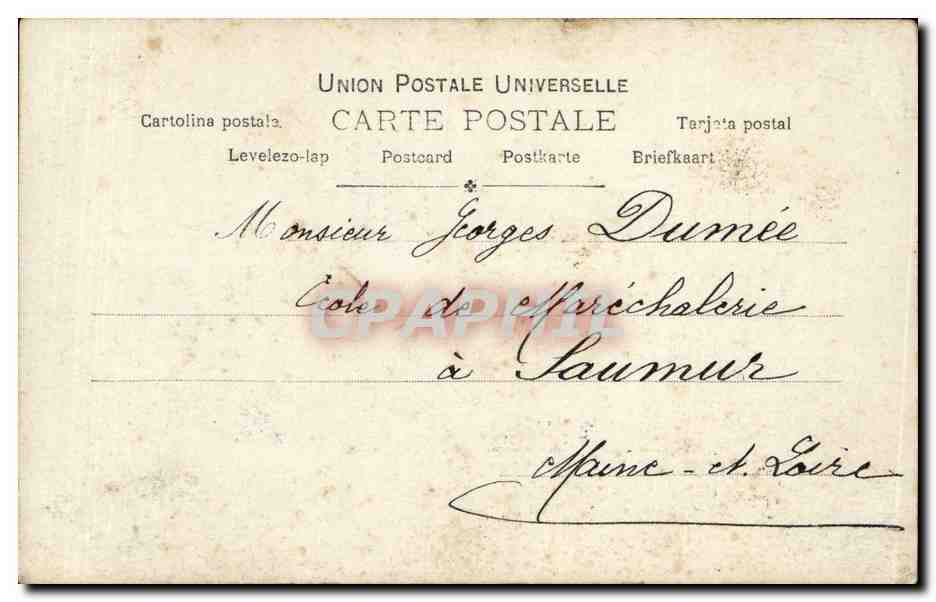 UNION POSTALE UNIVERSELLE
Cartolina postale. CARTE POSTALE Tarjeta postal
Levelezo-lap Postcard Postkarte Briefkaart
Monsieur Georges Dumée
École de Maréchalerie
CPAPHIL
à Saumur
Maine-et-Loire